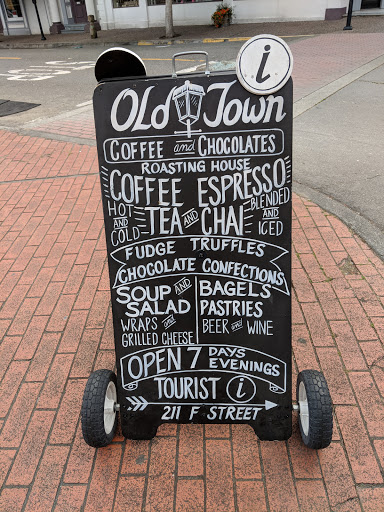 i
Old Town
COFFEE and CHOCOLATES
ROASTING HOUSE
COFFEE ESPRESSO
HOT AND COLD
TEA AND CHAI
BLENDED AND ICED
FUDGE TRUFFLES
CHOCOLATE CONFECTIONS
SOUP AND SALAD
WRAPS and GRILLED CHEESE
BAGELS
PASTRIES
BEER and WINE
OPEN 7 DAYS EVENINGS
TOURIST i
211 F STREET